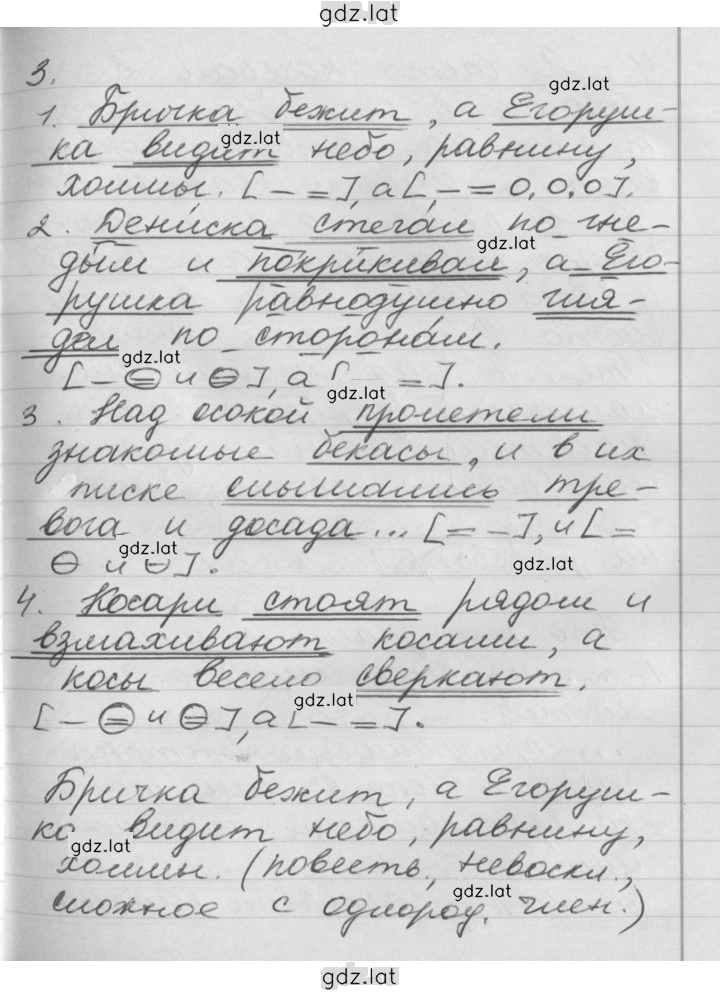 gdz.lat
3.
gdz.lat
1. Бричка бежит, а Егоруш-
gdz.lat
ка видит небо, равнину,
холмы. [ – = ], а [ , – = О, О, О ].
2. Дениска стегал по гне-
gdz.lat
дым и покрикивал, а Его-
рушка равнодушно гля-
дел по сторонам.
gdz.lat
[ – ⊜ и ⊜ ], а [ – = ].
gdz.lat
3. Над осокой пролетели
знакомые бекасы, и в их
писке слышались тре-
вога и досада... [ = – ], и [ =
gdz.lat
⊖ и ⊖ ].
gdz.lat
4. Косари стоят рядом и
взмахивают косами, а
косы весело сверкают.
gdz.lat
[ – ⊜ и ⊜ ], а [ – = ].
Бричка бежит, а Егоруш-
ка видит небо, равнину,
gdz.lat
холмы. (повеств., невоскл.,
gdz.lat
сложное с однород. член.)
gdz.lat